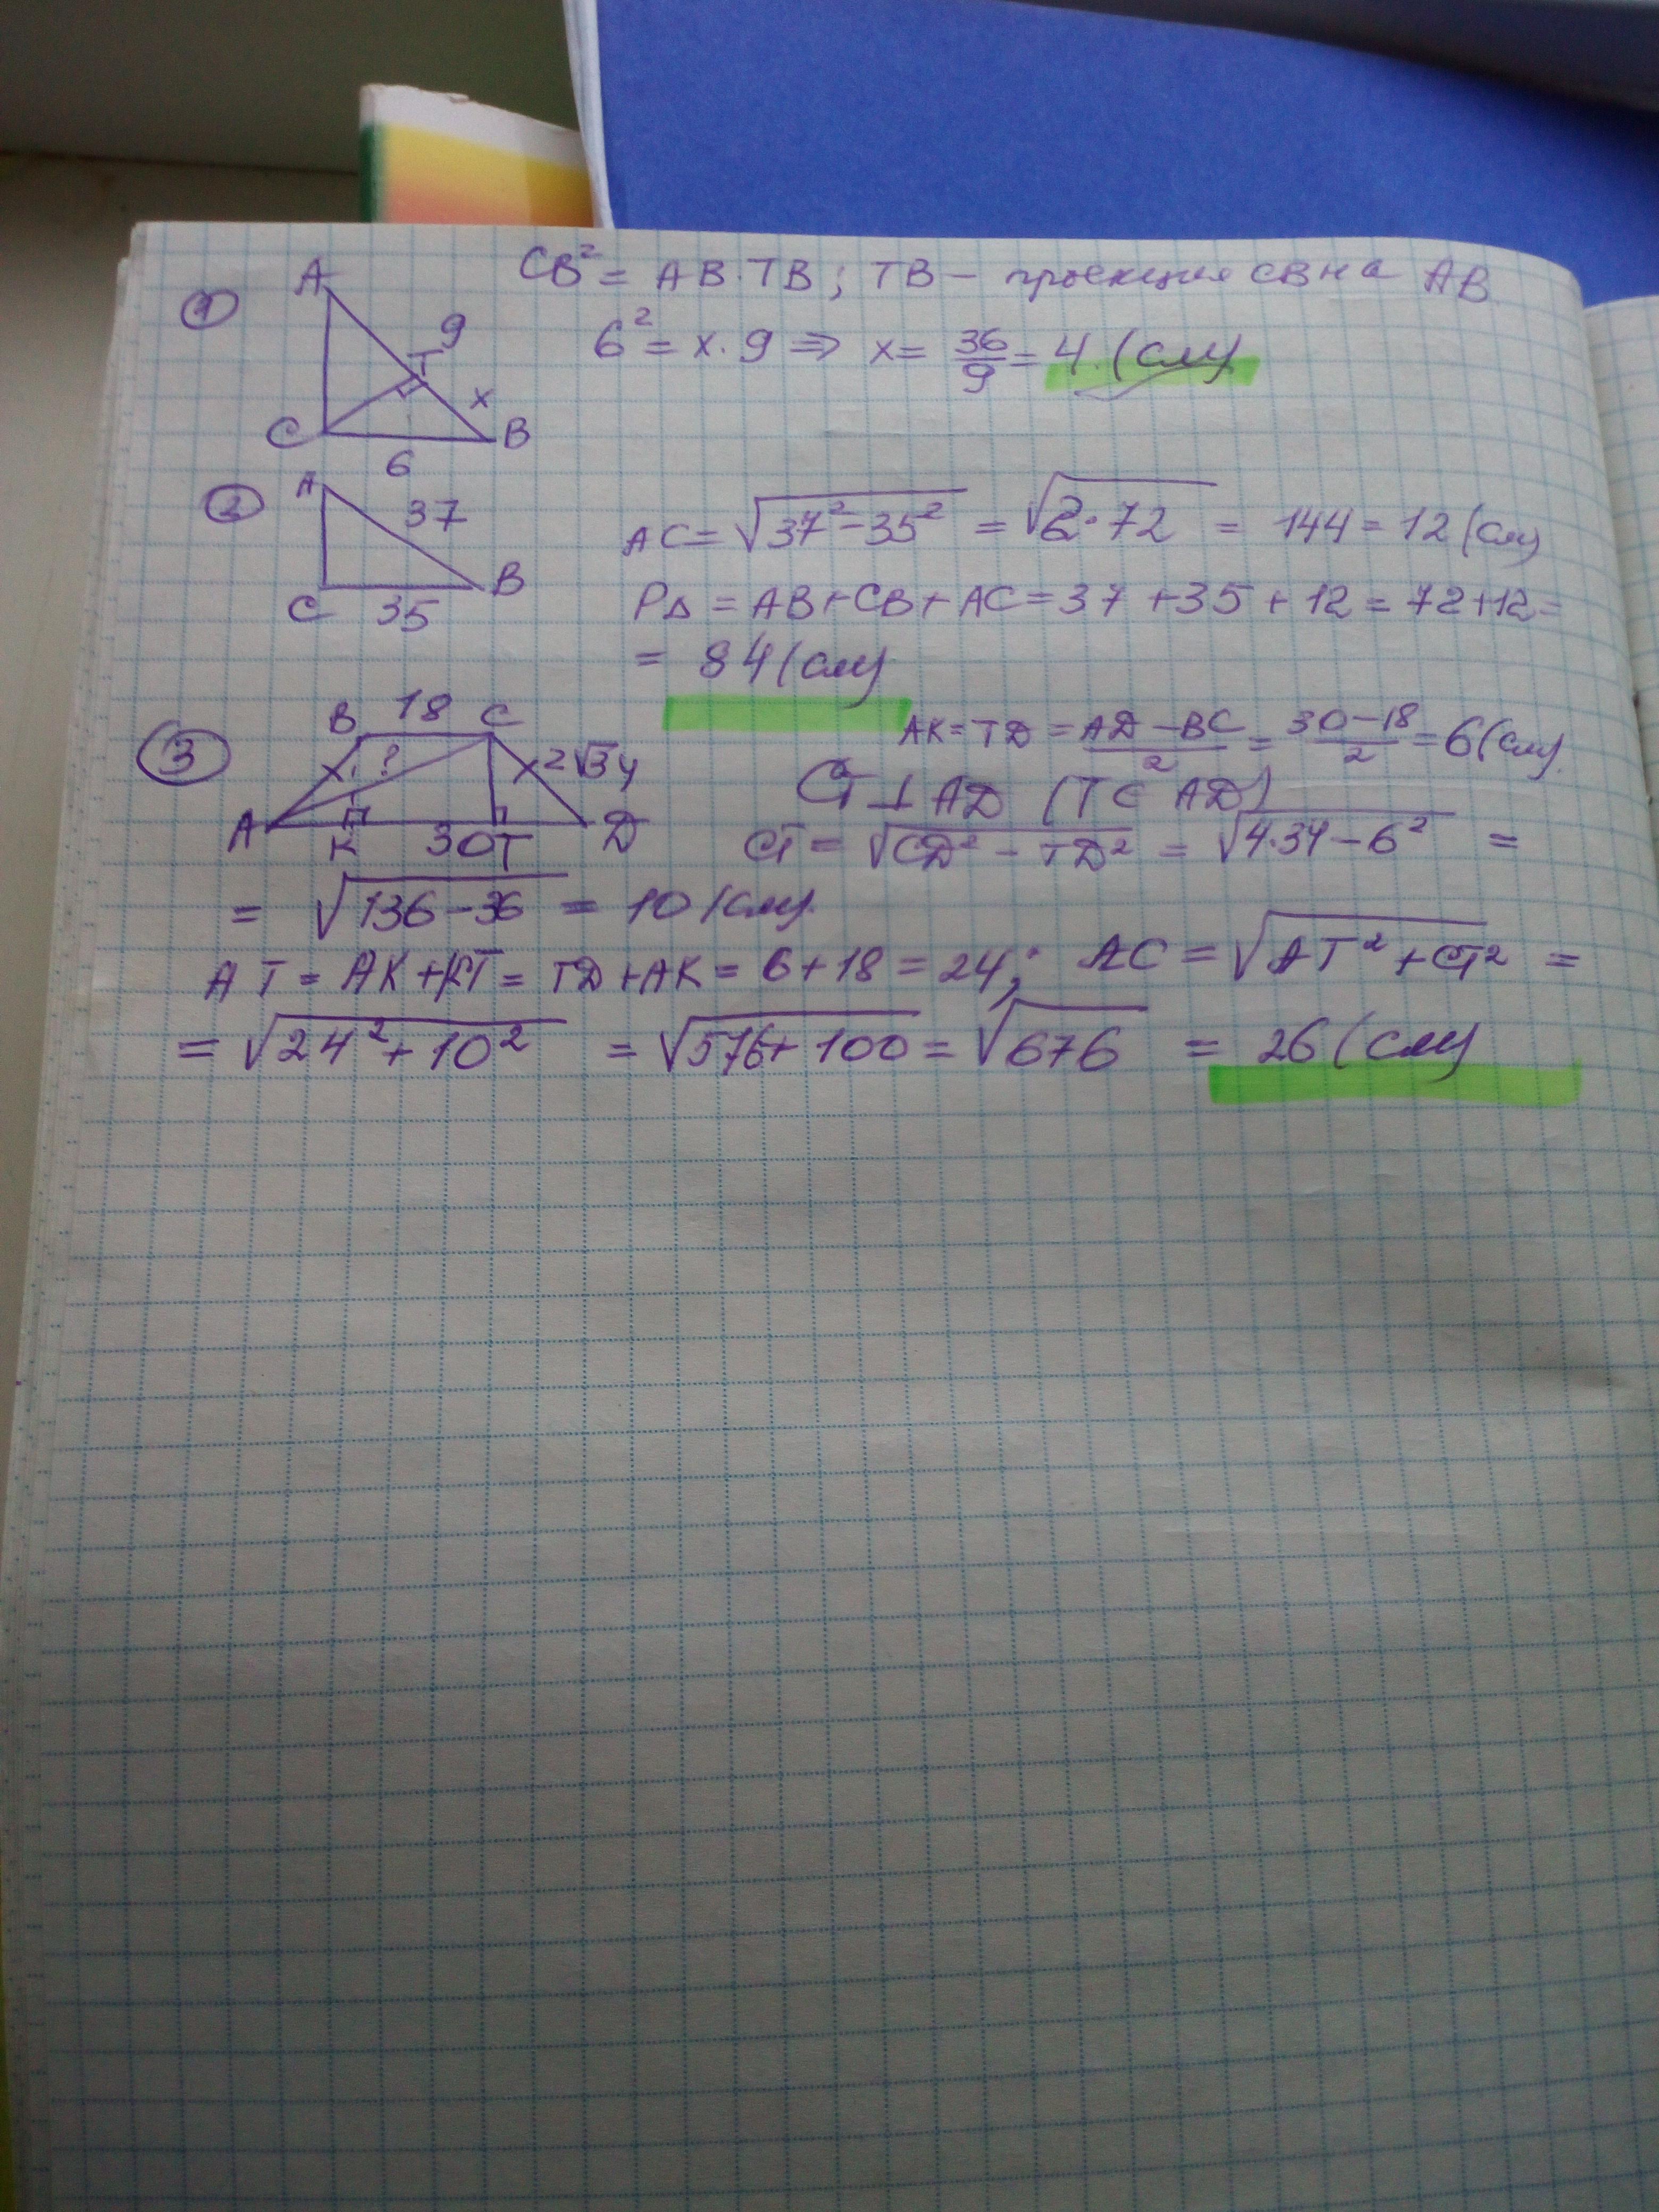 ① A 9 T x C 6 B
CB² = AB·TB; TB – проекция CB на AB
6² = x·9 ⇒ x = 36/9 = 4 (см)
② A 37 C 35 B
AC = √(37²–35²) = √(2·72) = 144 = 12 (см)
P△ = AB+CB+AC = 37+35+12 = 72+12 =
= 84 (см)
③ B 18 C ? 2√34 A K 30 T D
AK = TD = (AD–BC)/2 = (30–18)/2 = 6 (см)
CT ⊥ AD (T∈AD)
CT = √(CD²–TD²) = √(4·34–6²) =
= √(136–36) = 10 (см)
AT = AK+KT = TD+AK = 6+18 = 24; AC = √(AT²+CT²) =
= √(24²+10²) = √(576+100) = √676 = 26 (см)